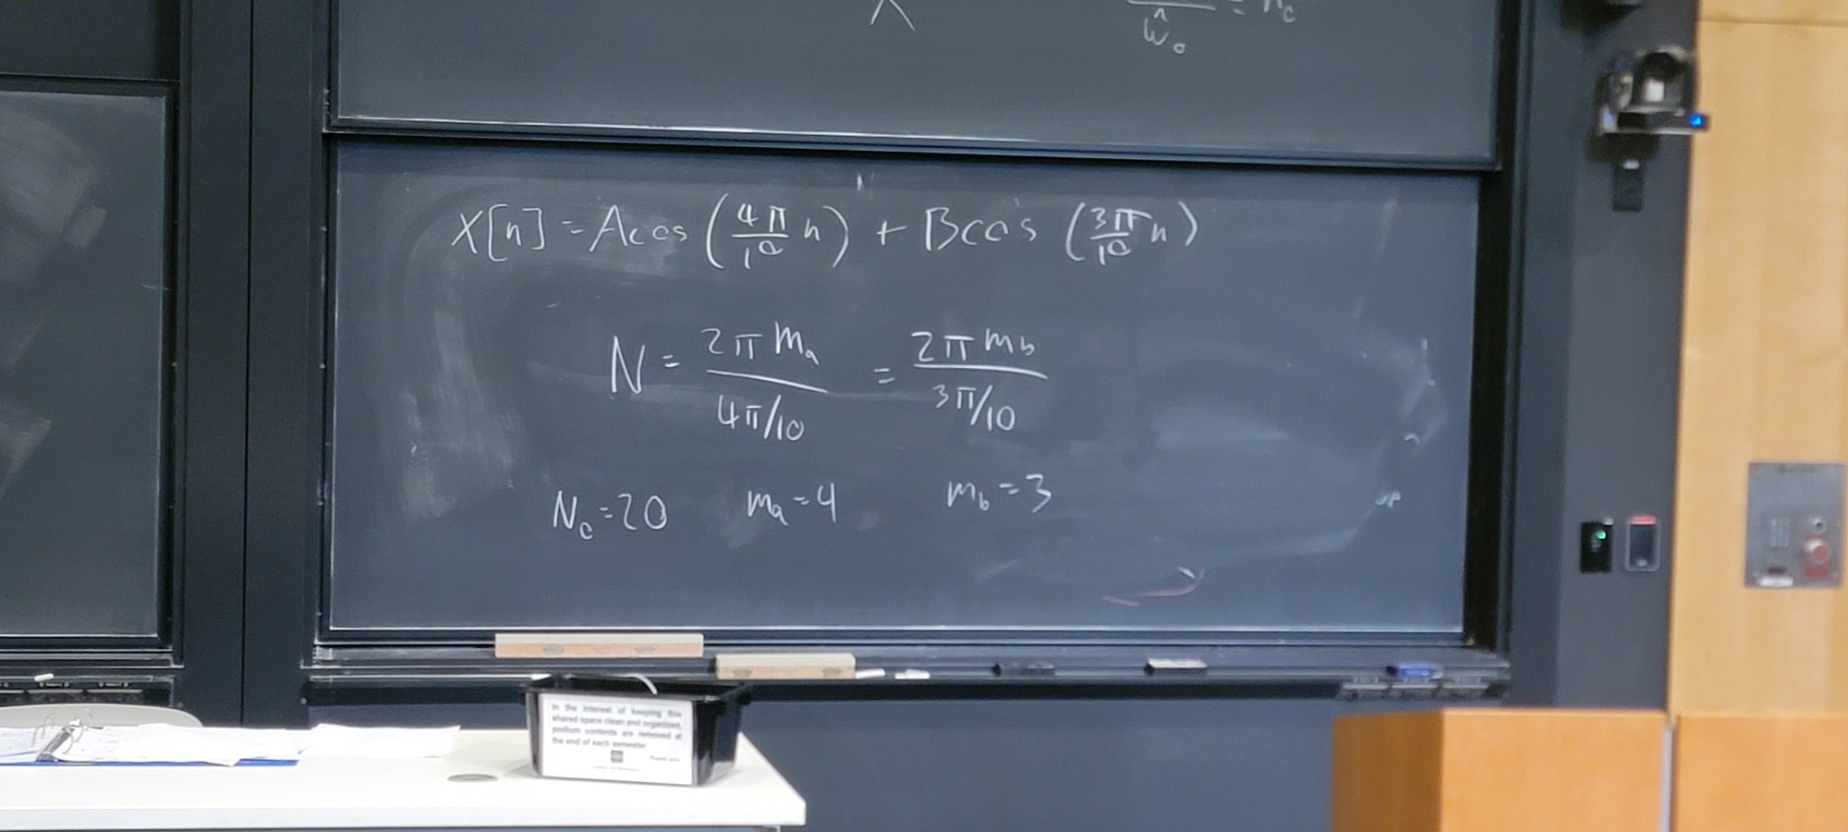 ŵ₀
x[n] = A cos (4π/10 n) + B cos (3π/10 n)
N = 2π mₐ / 4π/10 = 2π m_b / 3π/10
N₀ = 20 mₐ = 4 m_b = 3
In the interest of keeping this
shared space clean and organized,
podium contents are removed at
the end of each semester
Thank you